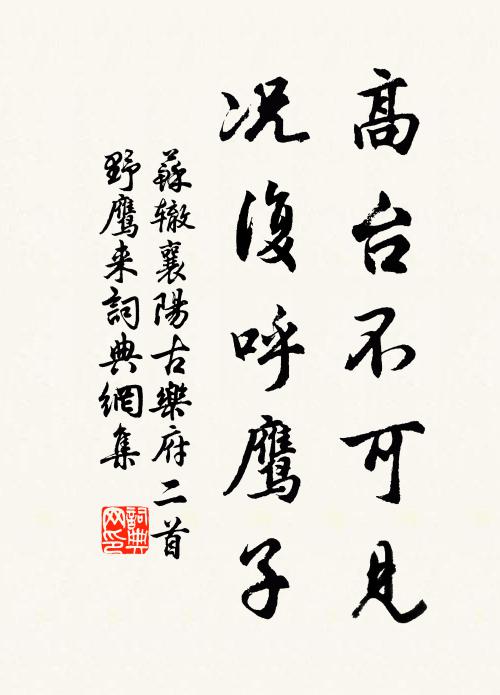 高台不可見
况復呼鷹子
蘇辙襄陽古樂府二首
野鷹来詞典網集
詞典
网印